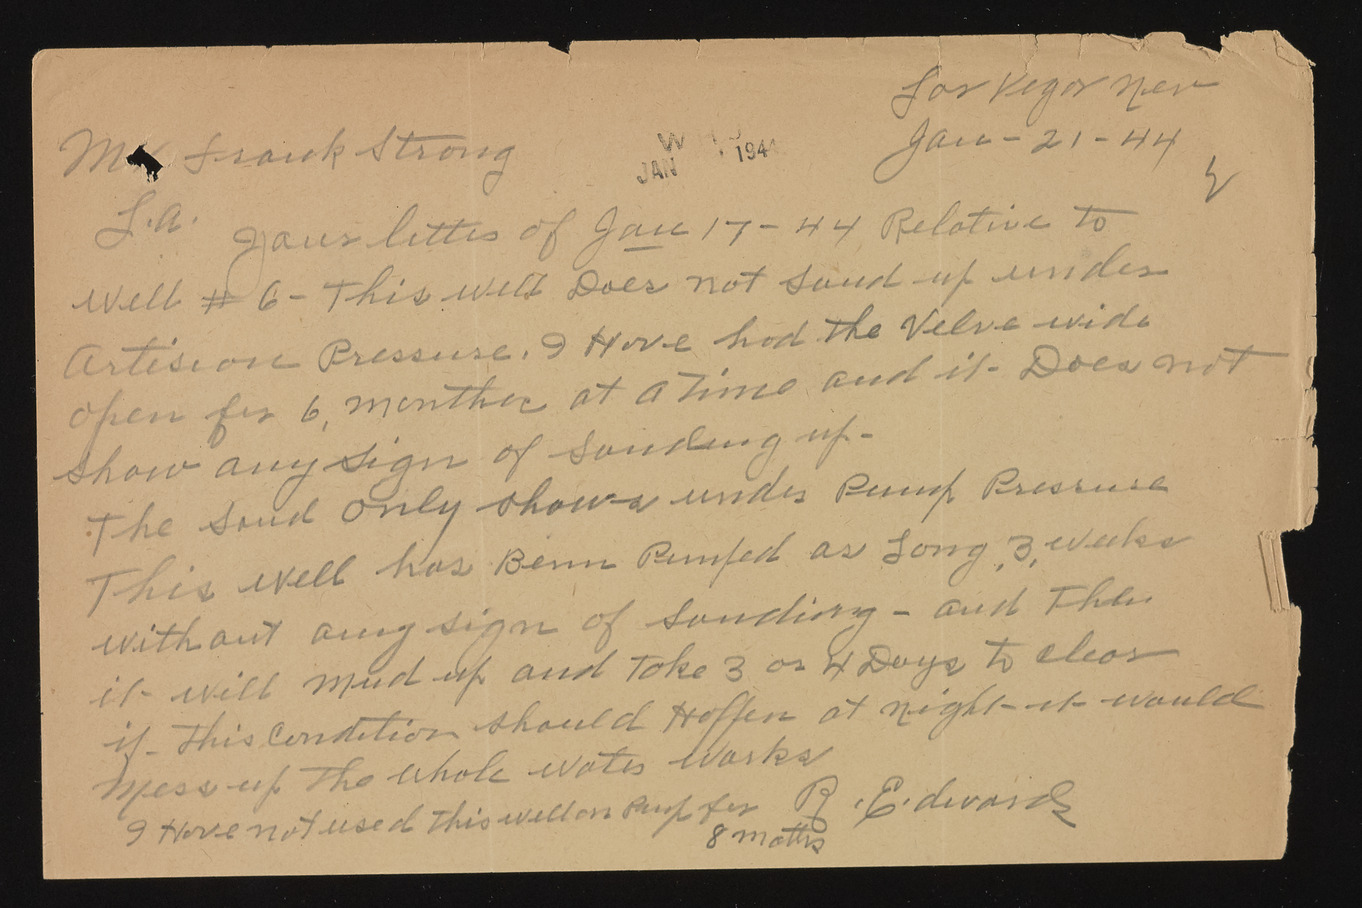 Las Vegas Nev
Jan - 21 - 44
Mr Frank Strong
W
JAN 1944
L.A.
Your letter of Jan 17 - 44 Relative to
Well # 6 - This well Does not Sand up under
Artision Pressure. I Have had the Velve wide
open for 6, monthes at A Time and it Does not
show any sign of Sanding up -
The Sand Only shows under Pump Pressure
This well has Benn Pumped as Long ,3, weeks
without any sign of Sanding - and Then
it will mud up and Take 3 or 4 Days to clear
if This Condition should Happen at night it would
Mess up The whole water works
R. Edwards
I Have not used this well on Pump for
8 moths